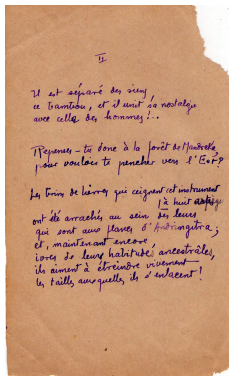 II
Il est séparé des siens
ce tambour, et il unit sa nostalgie
avec celle des hommes !..
Repenses-tu donc à la forêt de
pour vouloir te pencher vers l'Est ?
Les brins de lierres qui ceignent cet instrument
à huit
ont été arrachés au sein des leurs
qui sont aux flancs d'Andringitra ;
et, maintenant encore,
ivres de leurs habitudes ancestrales,
ils aiment à étreindre vivement
les tailles auxquelles ils s'enlacent !